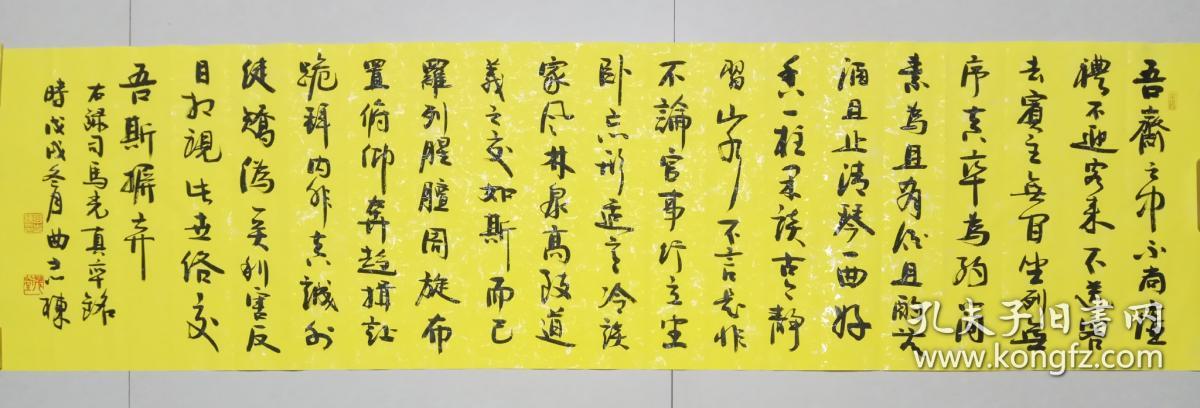 吾齋之中不尚虛
禮不迎客來不送客
去賓主無間坐列無
序真率為約簡
素為具有酒且酌无
酒且止清琴一曲好
香一炷閒談古今靜
習山水不言是非
不論官事行立坐
卧忘形適意冷談
家風林泉高致道
義之交如斯而已
羅列腥膻周旋布
置俯仰奔趨揖讓
跪拜內非真誠外
徒矯偽一關利害反
目相視此世俗交
吾斯摒弃
右錄司馬光真率銘
時戊戌冬月曲志棟
孔夫子旧书网
www.kongfz.com